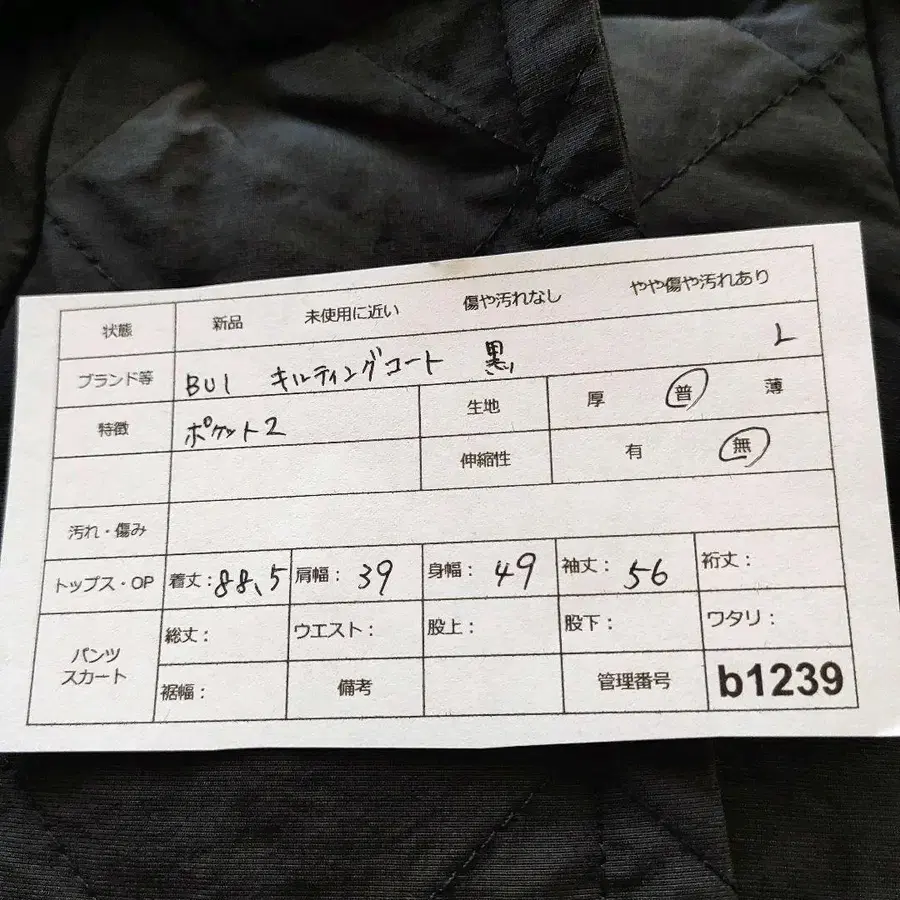 状態 新品 未使用に近い 傷や汚れなし やや傷や汚れあり
ブランド等 BUI キルティングコート 黒 L
特徴 ポケット2 生地 厚 普 薄
伸縮性 有 無
汚れ・傷み
トップス・OP 着丈:88.5 肩幅: 39 身幅: 49 袖丈: 56 裄丈:
パンツ スカート 総丈: ウエスト: 股上: 股下: ワタリ:
裾幅: 備考 管理番号 b1239